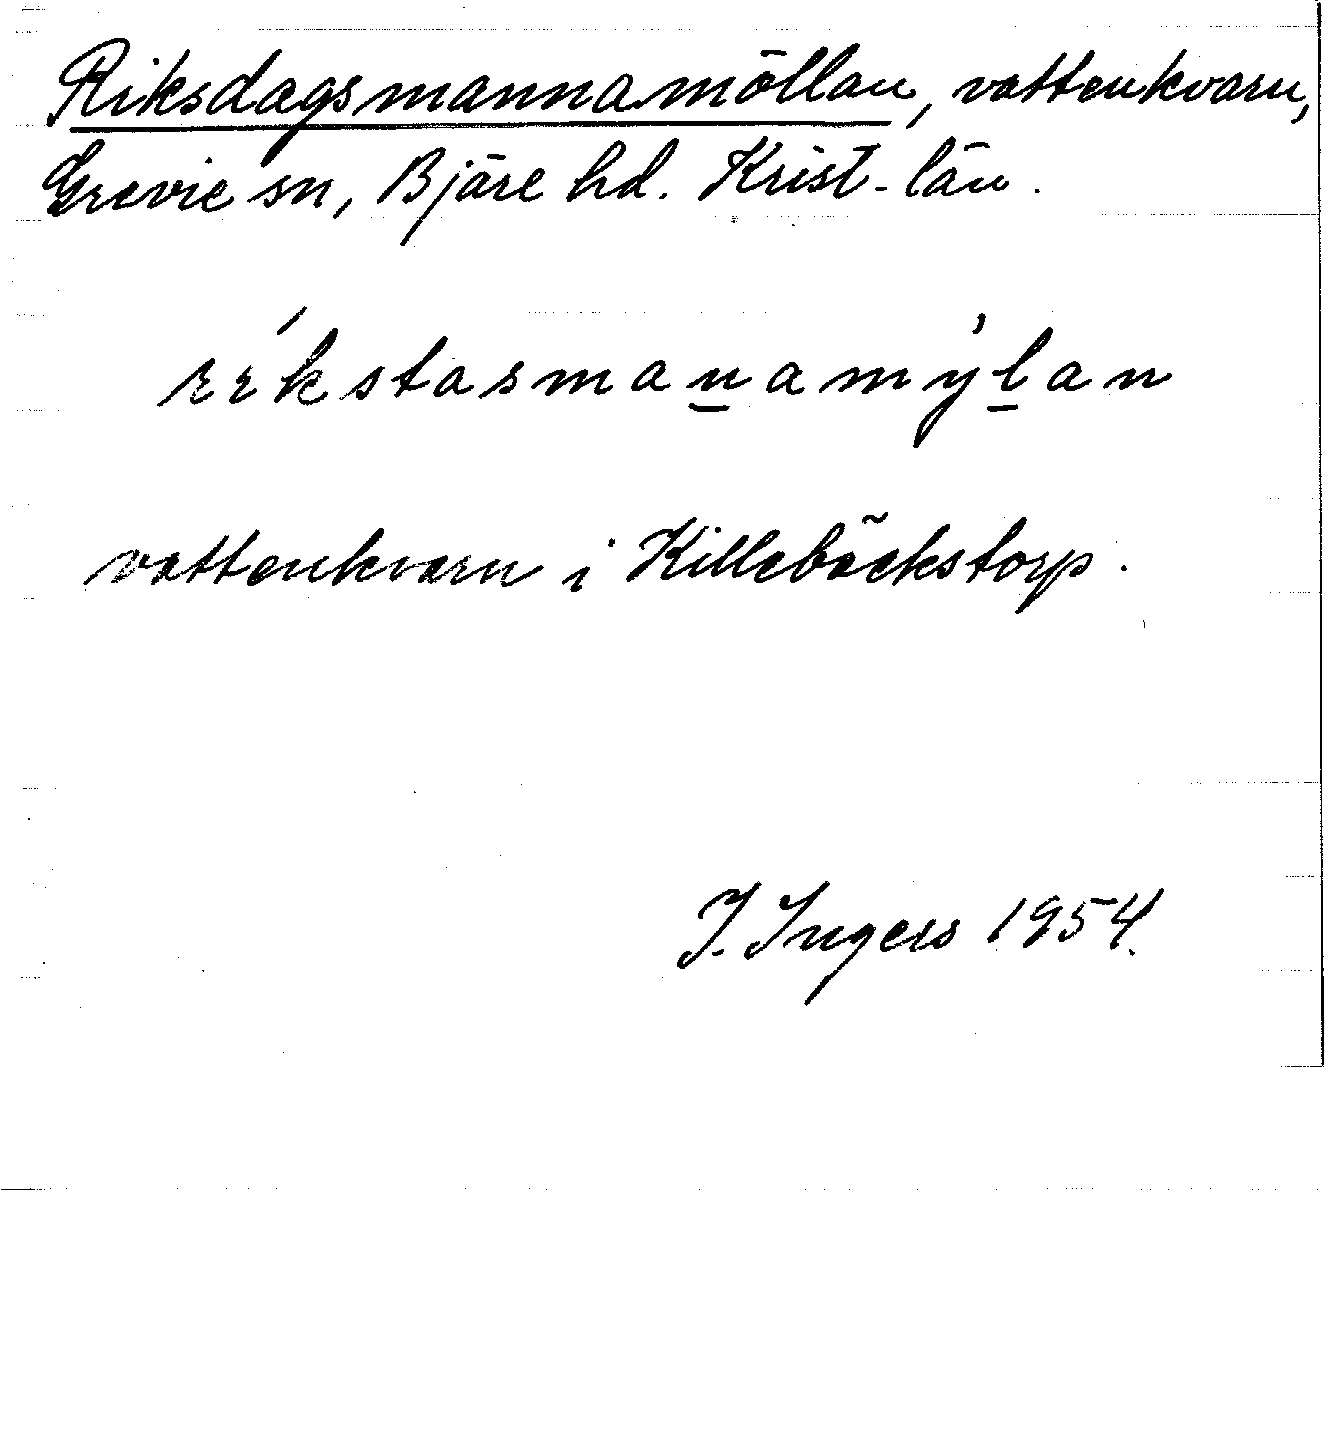 Riksdagsmannamöllan, vattenkvarn,
Grevie sn, Bjäre hd. Krist. län.
ríkstasmaṉamýḻan
vattenkvarn i Killebäckstorp.
I. Ingers 1954.